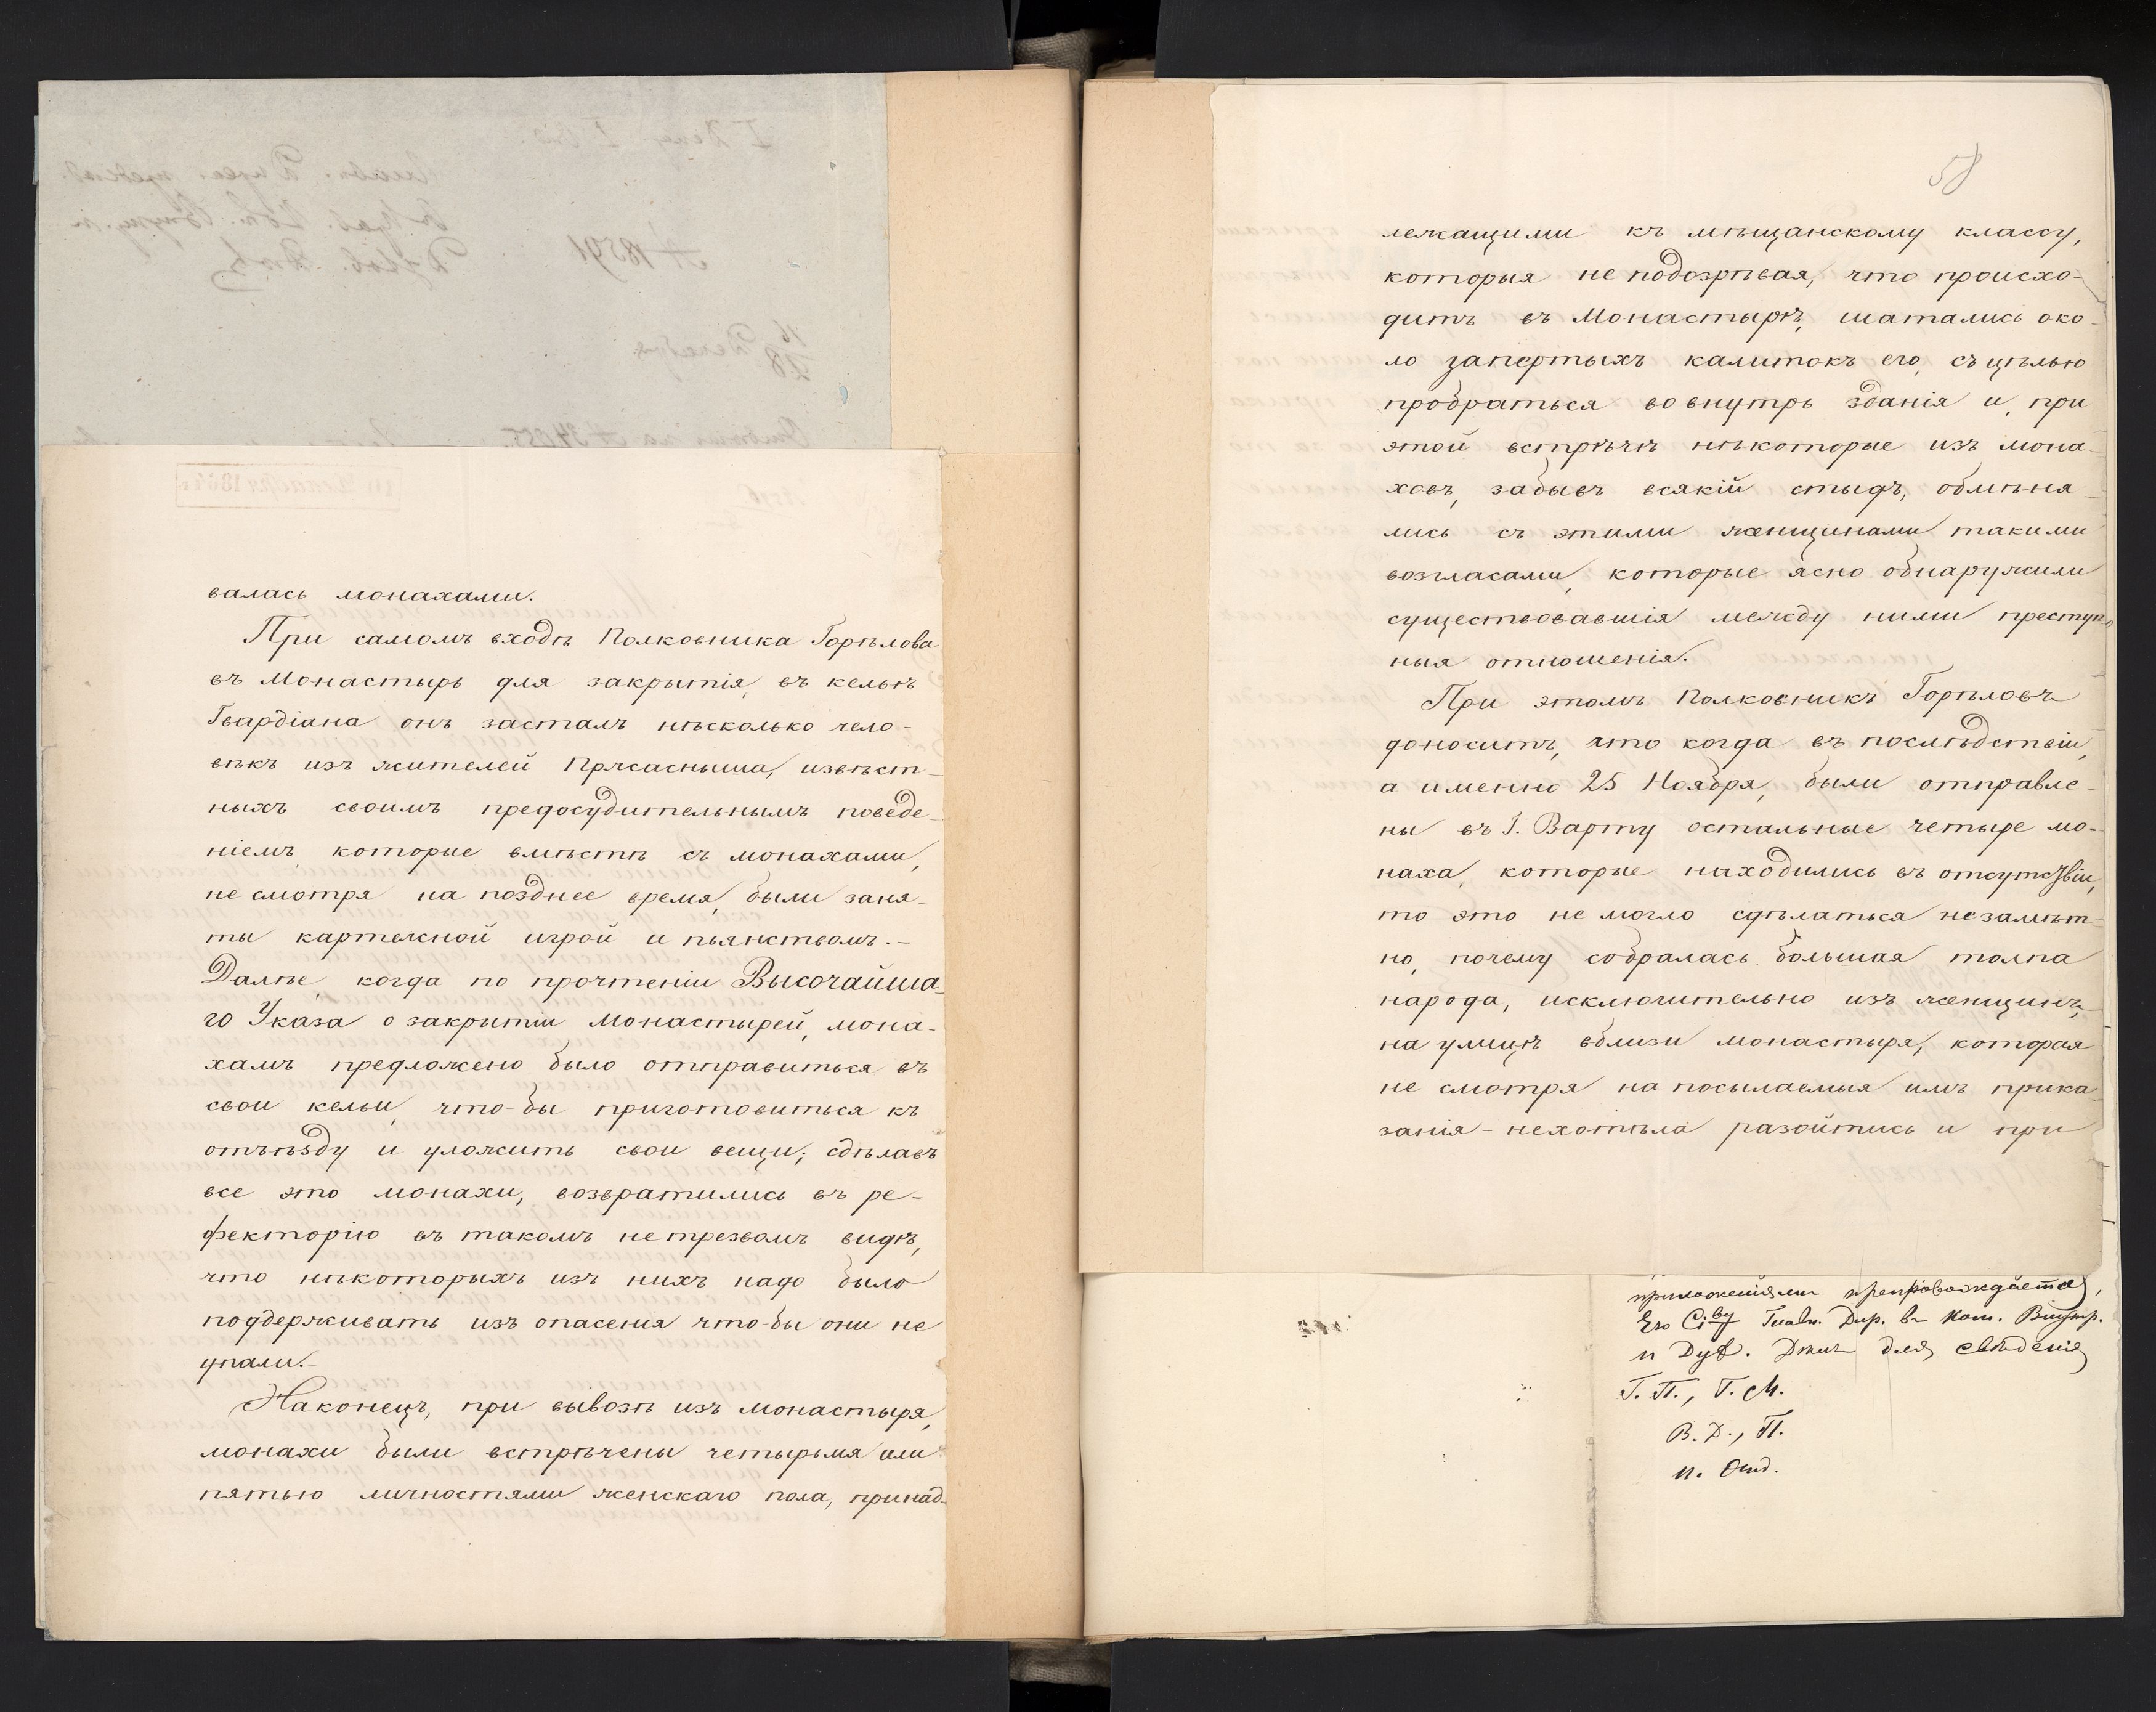 валась монахами.
При самомъ входѣ Полковника Горѣлова
въ Монастырь для закрытія, въ кельѣ
Гвардіана онъ засталъ нѣсколько чело-
вѣкъ изъ жителей Прясасныша, извѣст-
ныхъ своимъ предосудительнымъ поведе-
ніемъ, которые вмѣстѣ съ монахами,
не смотря на позднее время, были заня-
ты картежной игрой и пьянствомъ.-
Далѣе, когда по прочтеніи Высочайша-
го Указа о закрытіи Монастырей, мона-
хамъ предложено было отправиться въ
свои кельи, что-бы приготовиться къ
отъѣзду и уложить свои вещи; сдѣлавъ
все это монахи, возвратились въ ре-
фекторію въ такомъ нетрезвомъ видѣ,
что нѣкоторыхъ изъ нихъ надо было
поддерживать изъ опасенія что-бы они не
упали.-
Наконецъ, при вывозѣ изъ монастыря,
монахи были встрѣчены четырьмя или
пятью личностями женскаго пола, принад-
58
лежащими къ мѣщанскому классу,
которыя не подозрѣвая, что происхо-
дитъ въ Монастырѣ, шатались око-
ло запертыхъ калитокъ его, съ цѣлью
пробраться вовнутрь зданія и, при
этой встрѣчѣ нѣкоторые изъ мона-
ховъ, забывъ всякій стыдъ, обмѣня-
лись съ этими женщинами такими
возгласами, которые ясно обнаружили
существовавшія между ними преступ-
ныя отношенія.
При этомъ Полковникъ Горѣловъ
доноситъ, что когда въ послѣдствіи,
а именно 25 Ноября, были отправле-
ны въ г. Варту остальные четыре мо-
наха, которые находились въ отсутствіи,
то это не могло сдѣлаться незамѣт-
но, почему собралась большая толпа
народа, исключительно изъ женщинъ,
на улицѣ вблизи монастыря, которая
не смотря на посылаемыя имъ прика-
занія - нехотѣла разойтись и при
приложеніями препровождается,
Его Сіву Главн. Дир. въ Ком. Внутр.
и Дух. Дѣлъ для свѣденія
Г. П., Г. М.
В. Д., П.
н. Отд.